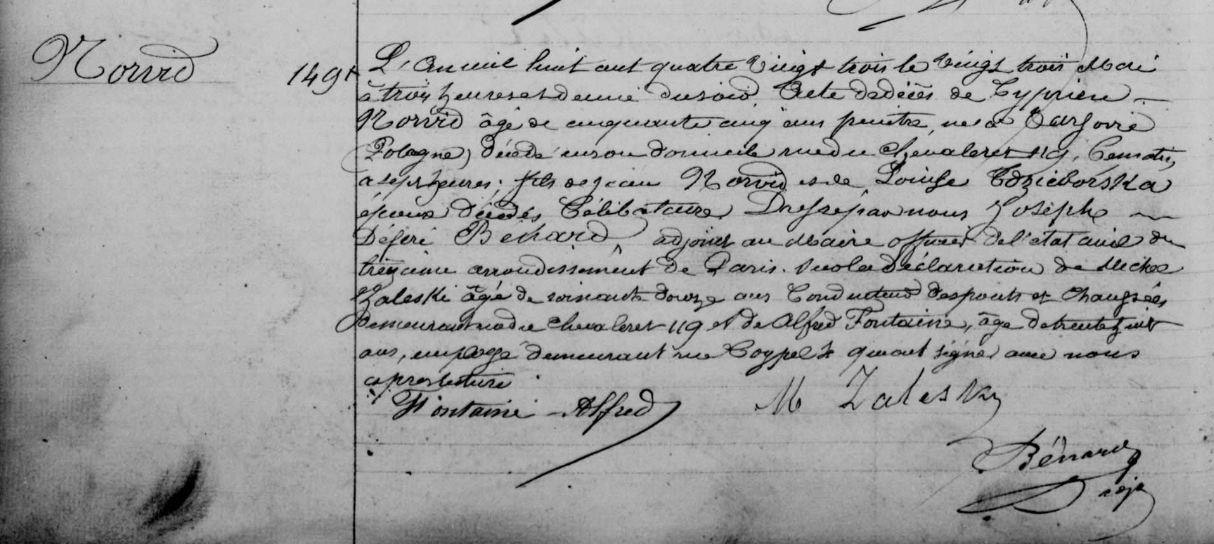 Norvid
1491 L'An mil huit cent quatre vingt trois le vingt trois Mai
à trois heures et demie du soir. Acte de décès de Cyprien
Norvid âgé de cinquante cinq ans peintre, né à Varsovie
(Pologne) décédé en son domicile rue du Chevaleret 119, Ce matin,
à sept heures; fils de Jean Norvid et de Louise Edzieborska
époux décédés Célibataire, Dressé par nous Joseph
Désiré Benard, adjoint au Maire officier de l'état civil du
treizième arrondissement de Paris. sur la Déclaration de Michel
Zaleski âgé de soixante douze ans Conducteur des ponts et Chaussées
demeurant rue du Chevaleret 119 et de Alfred Fontaine, âgé de trente huit
ans, employé demeurant rue Coypel qui ont signé avec nous
après lecture
Fontaine Alfred M Zalesky
Bénard
adj